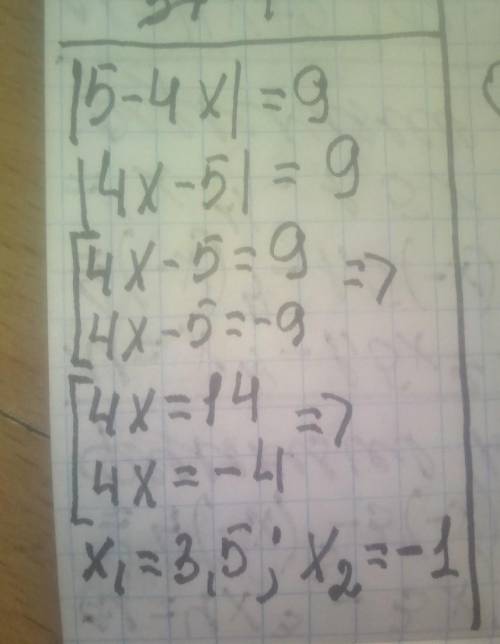 |5-4x|=9
|4x-5|=9
[4x-5=9
4x-5=-9 =>
[4x=14
4x=-4 =>
x₁=3,5; x₂=-1